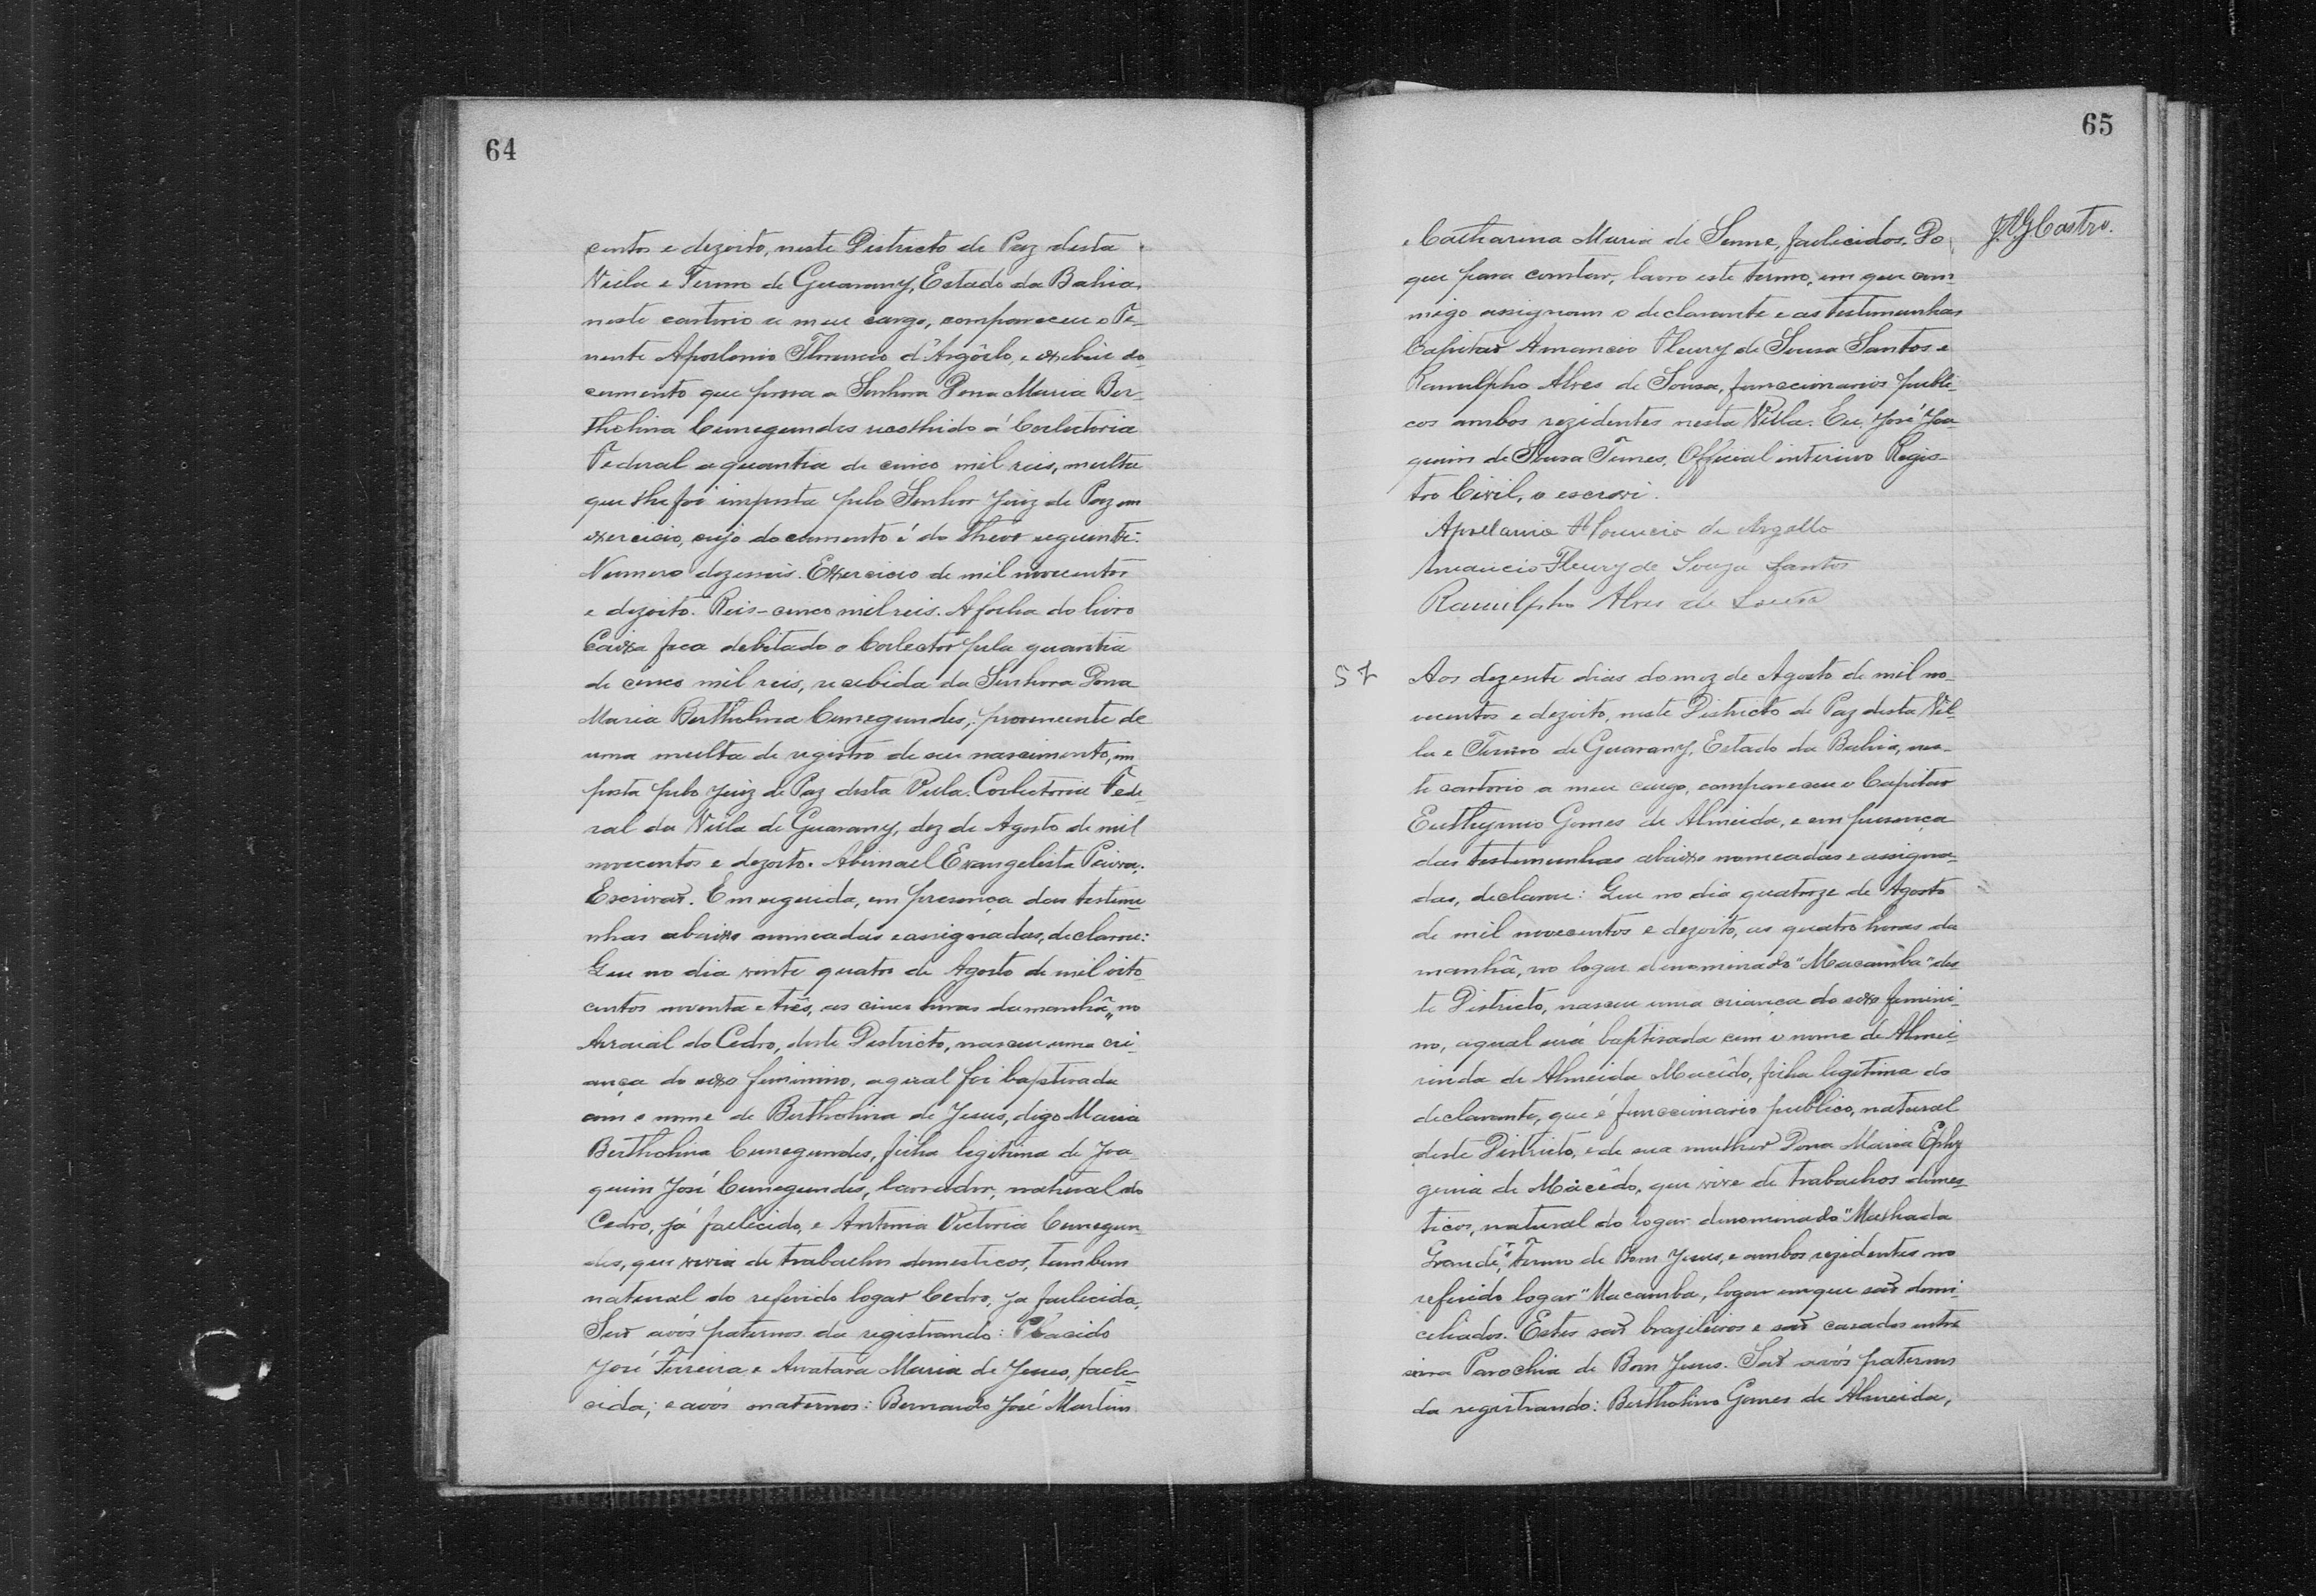 64
centos e dezoito, neste Districto de Paz desta
Villa e Termo de Guarany, Estado da Bahia,
neste cartorio a meu cargo, compareceu o Te-
nente Apollonio Florencio d'Argôllo, e exebiu do-
cumento que prova a Senhora Dona Maria Ber-
tholina Cunegundes recolhido á Collectoria
Federal a quantia de cinco mil reis, multa
que lhe foi imposta pelo Senhor Juiz de Paz em
exercicio, cujo documento é do theôr seguinte:
Numero dezesseis. Exercicio de mil novecentos
e dezoito. Reis - cinco mil reis. A folha do livro
Caixa fica debitado o Collector pela quantia
de cinco mil reis, recebida da Senhora Dona
Maria Bertholina Cunegundes, proveniente de
uma multa de registro de seu nascimento, im
posta pelo Juiz de Paz desta Villa. Collectoria Fede-
ral da Villa de Guarany, dez de Agosto de mil
novecentos e dezoito. Abimael Evangelista Paiva.
Escrivão. Em seguida, em presença das testimu-
nhas abaixo nomeadas e assignadas, declarou:
Que no dia vinte quatro de Agosto de mil oito
centos noventa e três, as cinco horas da manhã, no
Arraial do Cedro, deste Districto, nasceu uma cri-
ança do sexo feminino, a qual foi baptisada
com o nome de Bertholina de Jesus, digo Maria
Bertholina Cunegundes, filha legitima de Joa
quim José Cunegundes, lavrador, natural do
Cedro, já fallecido, e Antonia Victoria Cunegun-
des, que vivia de trabalhos domesticos, tambem
natural do referido logar Cedro, ja fallecida.
São avós paternos da registrando: Placido
José Ferreira e Maria de Jesus, falle-
cida; e avós maternos: Bernardo José Martins
65
J.A.G.Castro.
e Catharina Maria de Senne, fallecidos. Do
que para constar, lavro este termo, em que com-
migo assignam o declarante e as testimunhas
Capitão Amancio Fleury de Sousa Santos e
Ranulpho Alves de Sousa, funccionarios publi-
cos ambos rezidentes nesta Villa. Eu, José Joa-
quim de Sousa Tunes, Official interino Regis-
tro Civil, o escrevi.
Apollonio Florencio de Argollo
Amancio Fleury de Souza Santos
Ranulpho Alves de Sousa
57
Aos dezesete dias do mez de Agosto de mil no-
vecentos e dezoito, neste Districto de Paz desta Vil-
la e Termo de Guarany, Estado da Bahia, nes-
te cartorio a meu cargo, compareceu o Capitão
Euthymio Gomes de Almeida, e em presença
das testimunhas abaixo nomeadas e assigna-
das, declarou: Que no dia quatorze de Agosto
de mil novecentos e dezoito, as quatro horas da
manhã, no logar denominado "Macamba" des-
te Districto, nasceu uma criança do sexo femini-
no, a qual será baptisada com o nome de Almei-
rinda de Almeida Macêdo, filha legitima do
declarante, que é funccionario publico, natural
deste Districto, e de sua mulher Dona Maria Ephy
genia de Macêdo, que vive de trabalhos domes-
ticos, natural do logar denominado "Malhada
Grande", termo de Bom Jesus, e ambos rezidentes no
referido logar "Macamba, logar em que são domi-
ciliados. Estes são brazileiros e são casados entre
si na Parochia de Bom Jesus. São avós paternos
da registrando: Bertholino Gomes de Almeida,